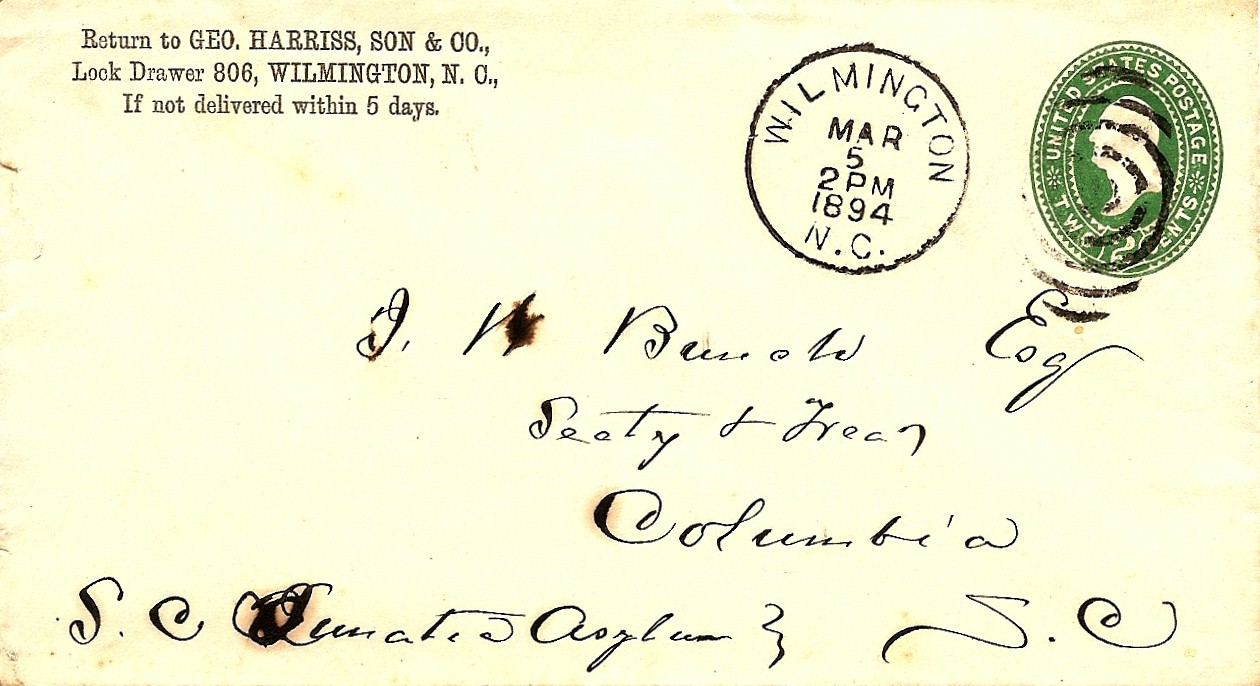 Return to GEO. HARRISS, SON & CO.,
Lock Drawer 806, WILMINGTON, N. C.,
If not delivered within 5 days.
WILMINGTON
MAR
5
2PM
1894
N.C.
UNITED STATES POSTAGE
TWO CENTS
2
J. W Bunch Esq
Secty & Treas
Columbia
S. C Lunatic Asylum S. C